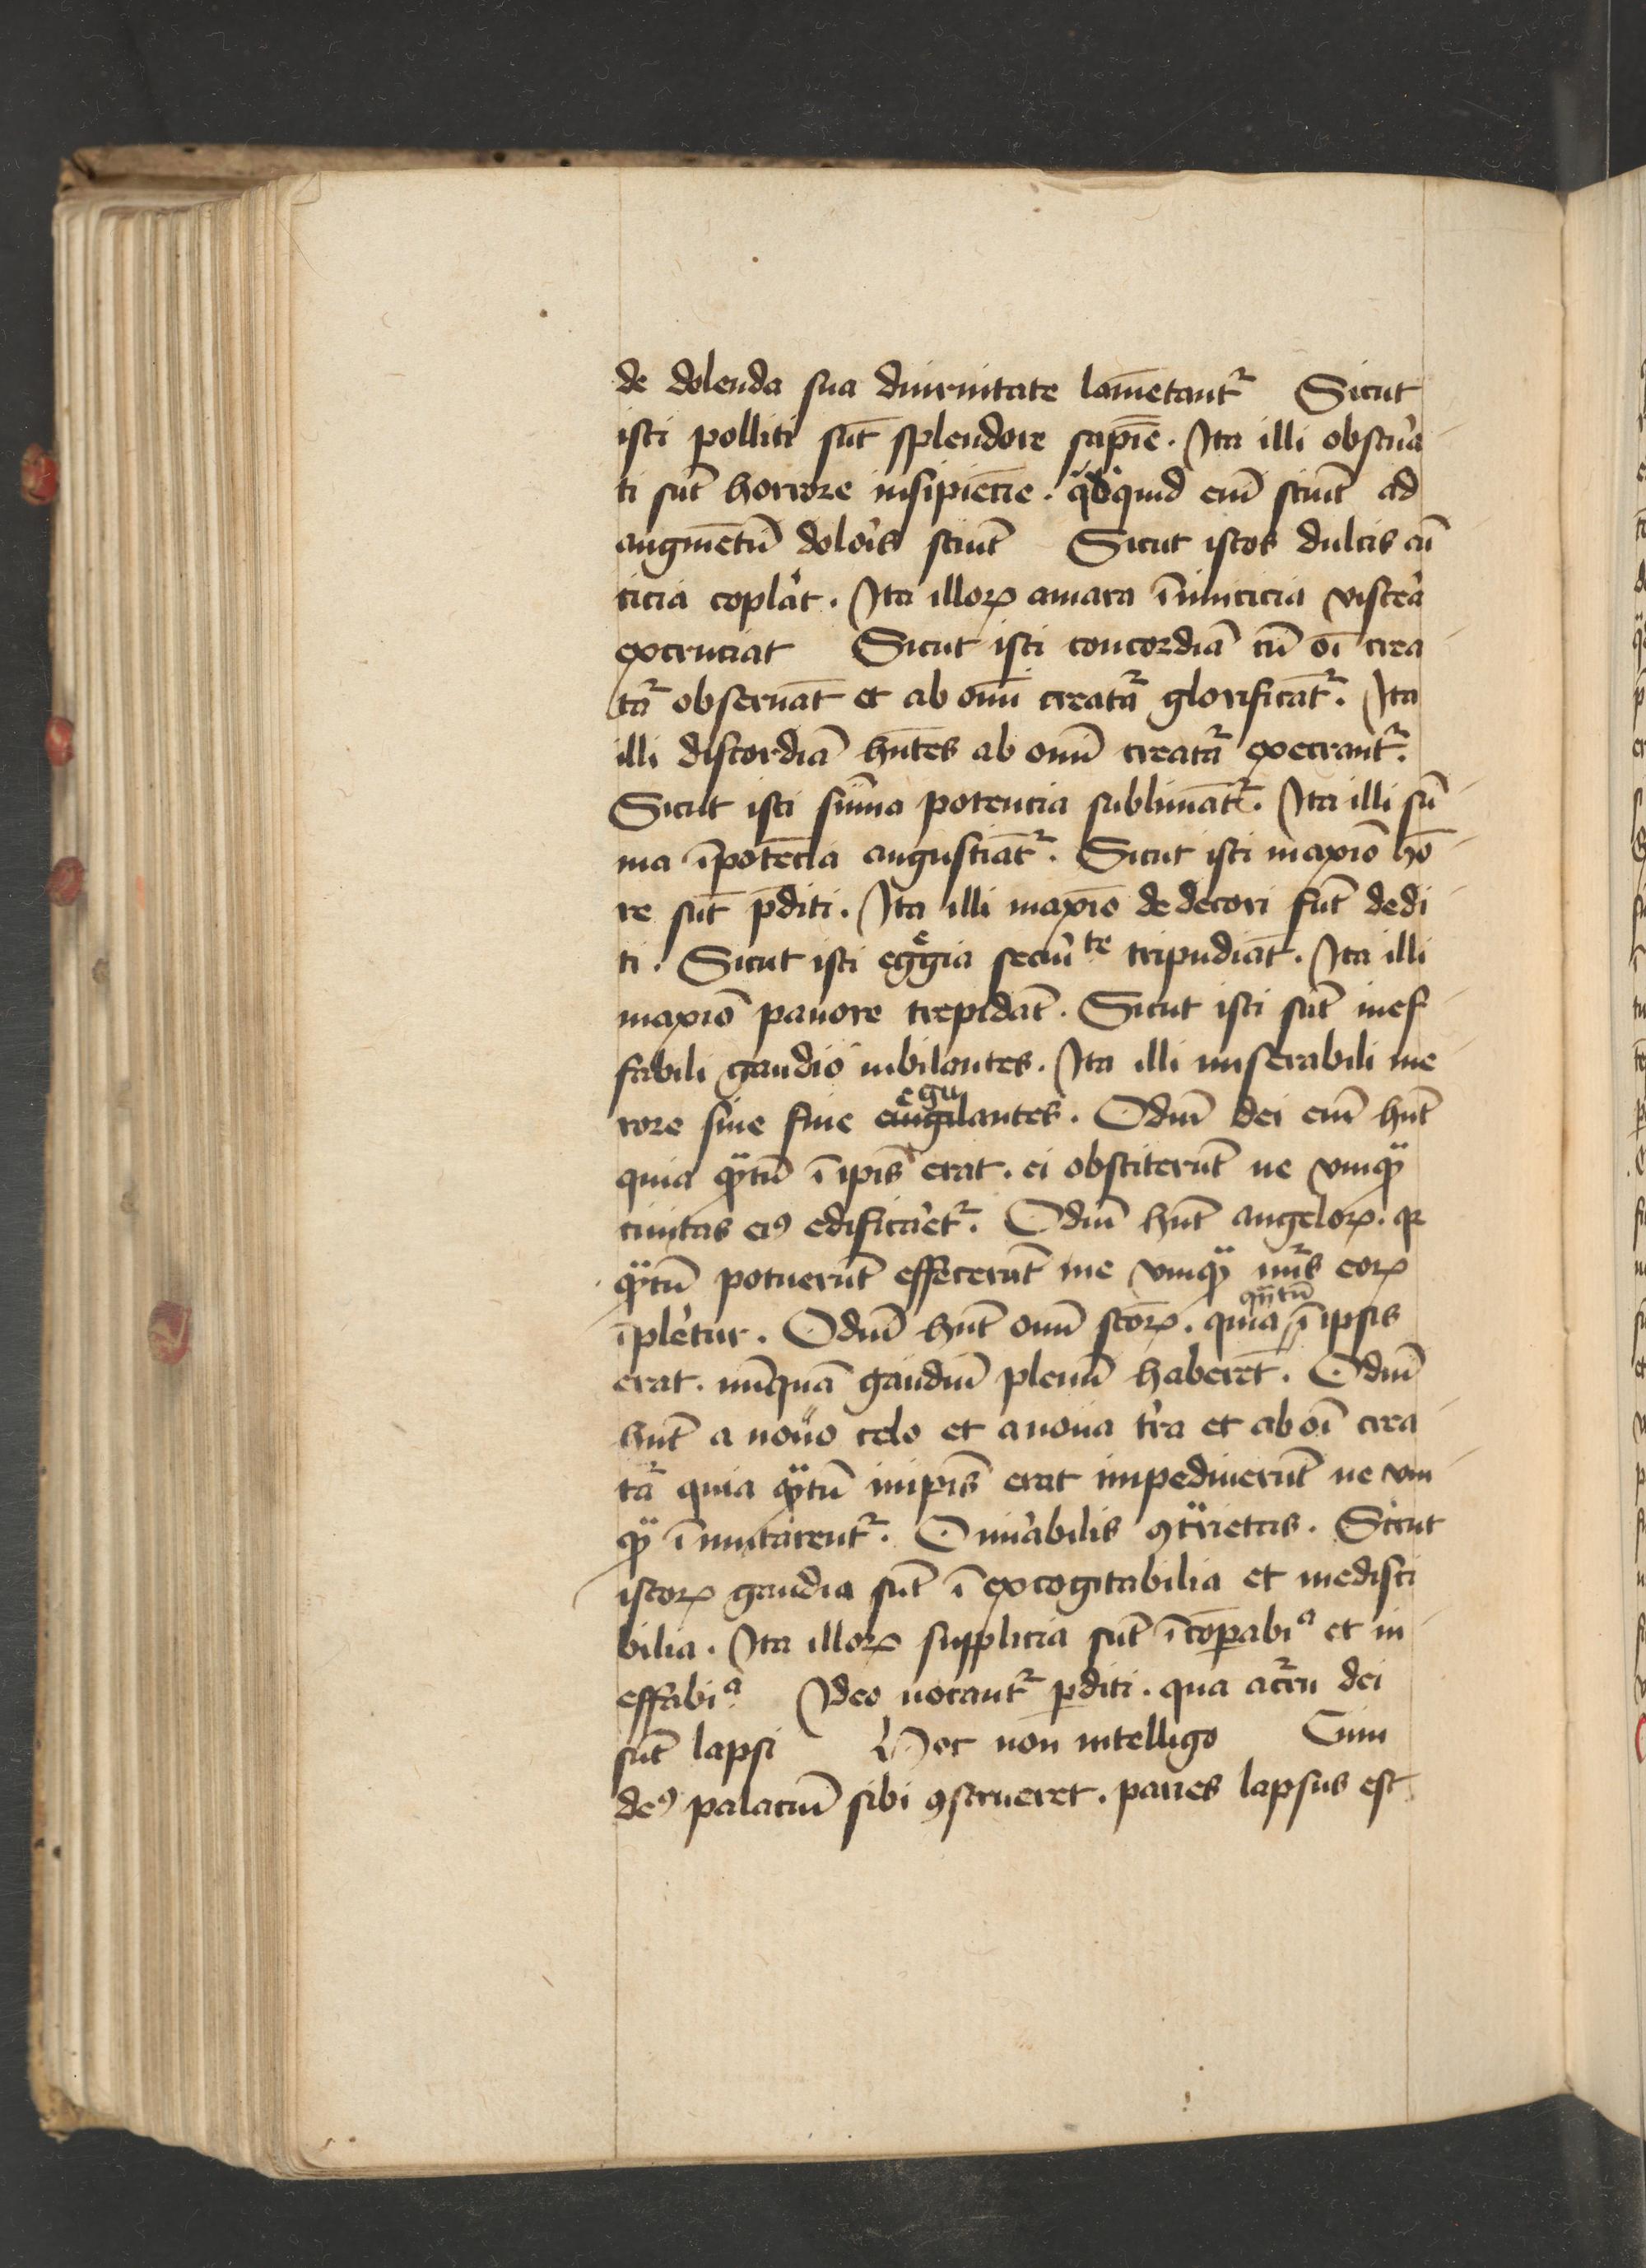 de dolenda sua diurnitate lame̅tant᷑ Sicut
isti polliti su̅t splendore sapie̅. Ita illi obscura
ti su̅t horrore insipie̅cie. quidquid eni̅ sciu̅t ad
augme̅tu̅ doloris sciu̅t Sicut istos dulcis ami
cicia coplat. Ita illoꝝ amara i̅nimicicia viscera
excruciat Sicut isti concordia̅ cu̅ oi̅ crea
ta᷑ obserua̅t et ab omi̅ creata᷑ glorifica̅t᷑. Ita
illi discordia̅ hn̅tes ab omi̅ creata᷑ execrant᷑.
Sicut isti su̅ma potencia sublima̅t᷑. Ita illi su̅
ma i̅pote̅cia angustia̅t᷑. Sicut isti maxi̅o ho̅
re su̅t p̅diti. Ita illi maxi̅o dedecori su̅t dedi
ti. Sicut isti egͤgia securͭͤ tripudia̅t. Ita illi
maxi̅o pauore trepida̅t. Sicut isti su̅t inef
fabili gaudio iubilantes. Ita illi miserabili me
rore sine fine eiugilantes. Odiu̅ dei eni̅ hn̅t
egu
quia qͣ̅tu̅ i̅ ip̅is erat. ei obstiteru̅t ne vmqͣ̅
ciuitas eiꝰ edificaret᷑. Odiu̅ hn̅t angeloꝝ. qꝛ
qͣ̅tu̅ potueru̅t effeceru̅t ne vmqͣ̅ nu̅s eoꝝ
i̅pletur. Odiu̅ hn̅t omi̅ sc̅oꝝ. quia qͣ̅tu̅ i̅ ipsis
erat. nu̅quam gaudiu̅ plenu̅ habere̅t. Odiu̅
hn̅t a nouo celo et a noua t̓ra et ab oi̅ crea
ta᷑ quia qͣ̅tu̅ in ip̅is erat impediueru̅t ne vm
qͣ̅ i̅mutarent᷑. O mi̓abilis ꝯtͣrietas. Sicut
istoꝝ gaudia su̅t i̅excogitabilia et inedisci
bilia. Ita illoꝝ supplicia su̅t i̅co̅ꝑabiᵃ et in
effabiᵃ Ideo uocant᷑ ꝑditi. qua dei
su̅t lapsi Hoc non intelligo Cum
deꝰ palaciu̅ sibi ꝯstrueret. paries lapsus est